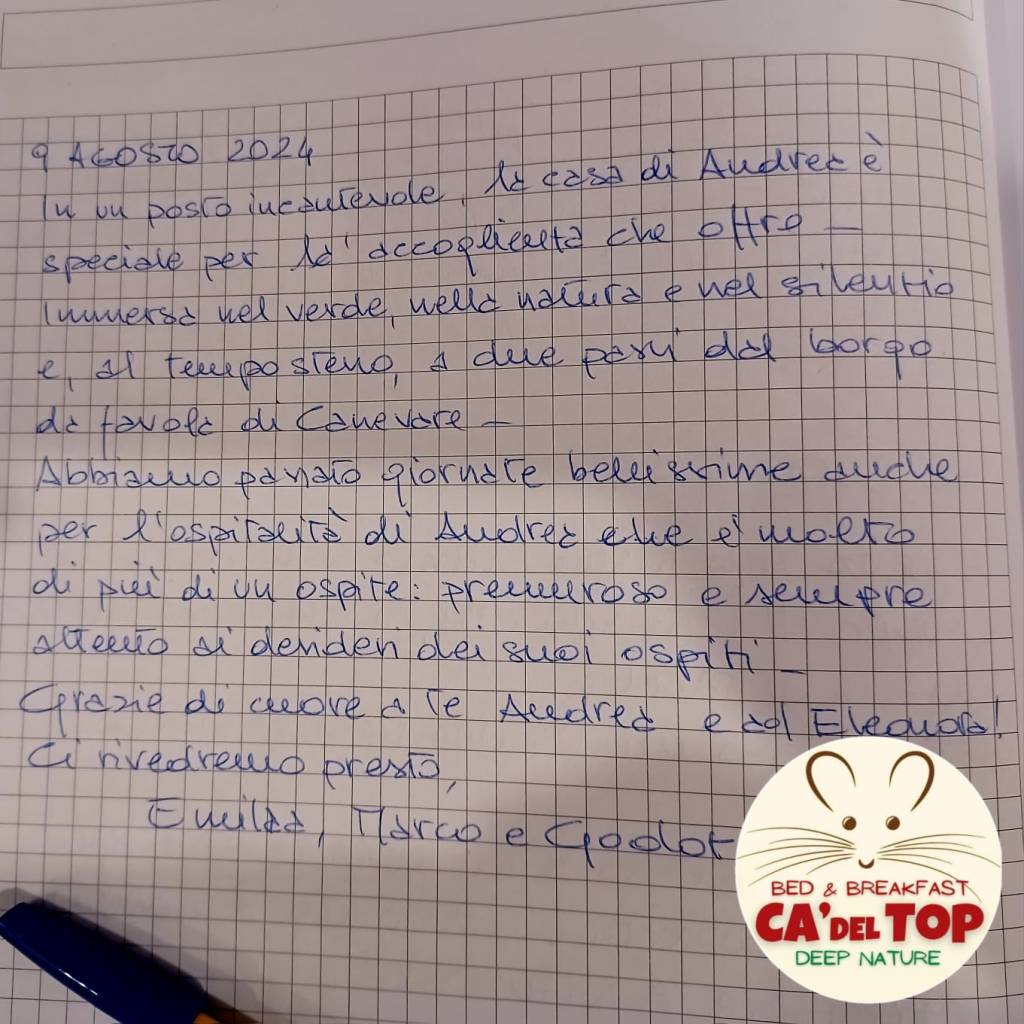 9 AGOSTO 2024
In un posto incantevole, la casa di Andrea è
speciale per la' accoglienza che offre –
Immersa nel verde, nella natura e nel silenzio
e, al tempo stesso, a due passi dal borgo
da favola di Canevare –
Abbiamo passato giornate bellissime anche
per l'ospitalità di Andrea che è molto
di più di un ospite: premuroso e sempre
attento ai desideri dei suoi ospiti –
Grazie di cuore a te Andrea e ad Eleonora!
Ci rivedremo presto,
Emilia, Marco e Godot
BED & BREAKFAST
CA' DEL TOP
DEEP NATURE